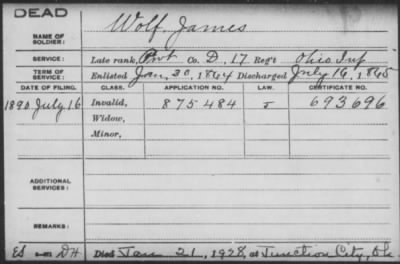 DEAD
NAME OF SOLDIER: Wolf, James
SERVICE: Late rank, Pvt Co. D, 17 Reg't Ohio Inf
TERM OF SERVICE: Enlisted Jan. 30, 1864 Discharged July 16, 1865
DATE OF FILING. CLASS. APPLICATION NO. LAW. CERTIFICATE NO.
1890 July 16 Invalid, 875484 J 693696
Widow,
Minor,
ADDITIONAL SERVICES:
REMARKS:
Died Jan 21, 1928, at Junction City, Oh